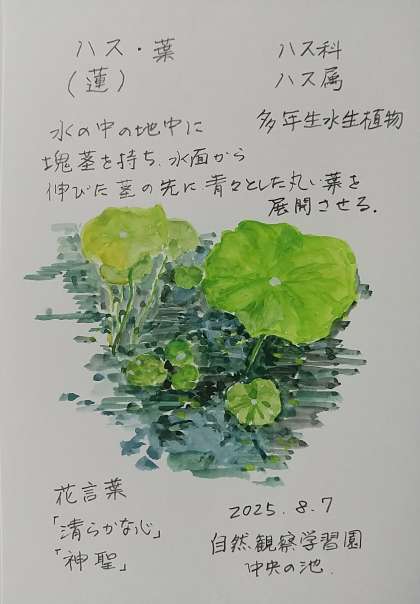 ハス・葉
(蓮)
ハス科
ハス属
多年生水生植物
水の中の地中に
塊茎を持ち、水面から
伸びた茎の先に青々とした丸い葉を
展開させる.
花言葉
「清らかな心」
「神聖」
2025.8.7
自然観察学習園
中央の池.